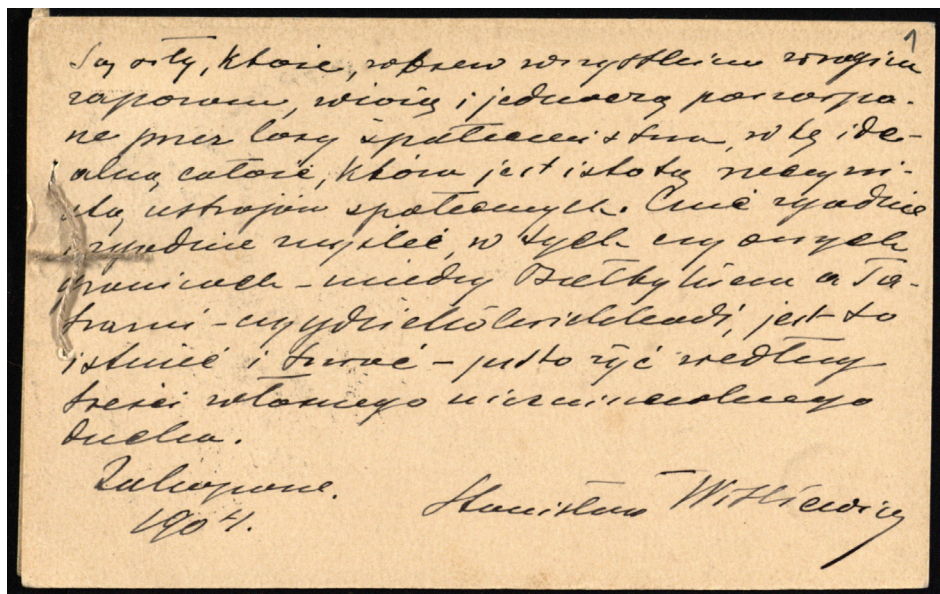 1
Są siły, które, wbrew wszystkim wrogim
zaporom, wiążą i jednoczą poszarpa-
ne przez losy społeczeństwa, w tę ide-
alną całość, która jest istotą rzeczywi-
stą ustrojów społecznych. Czuć zgodnie
i zgodnie myśleć, w tych czy onych
granicach – między Bałtykiem a Ta-
trami – czy gdziekolwiekbądź, jest to
istnieć i trwać – jest to żyć według
treści własnego niezniszczalnego
ducha.
Zakopane.
1904.
Stanisław Witkiewicz